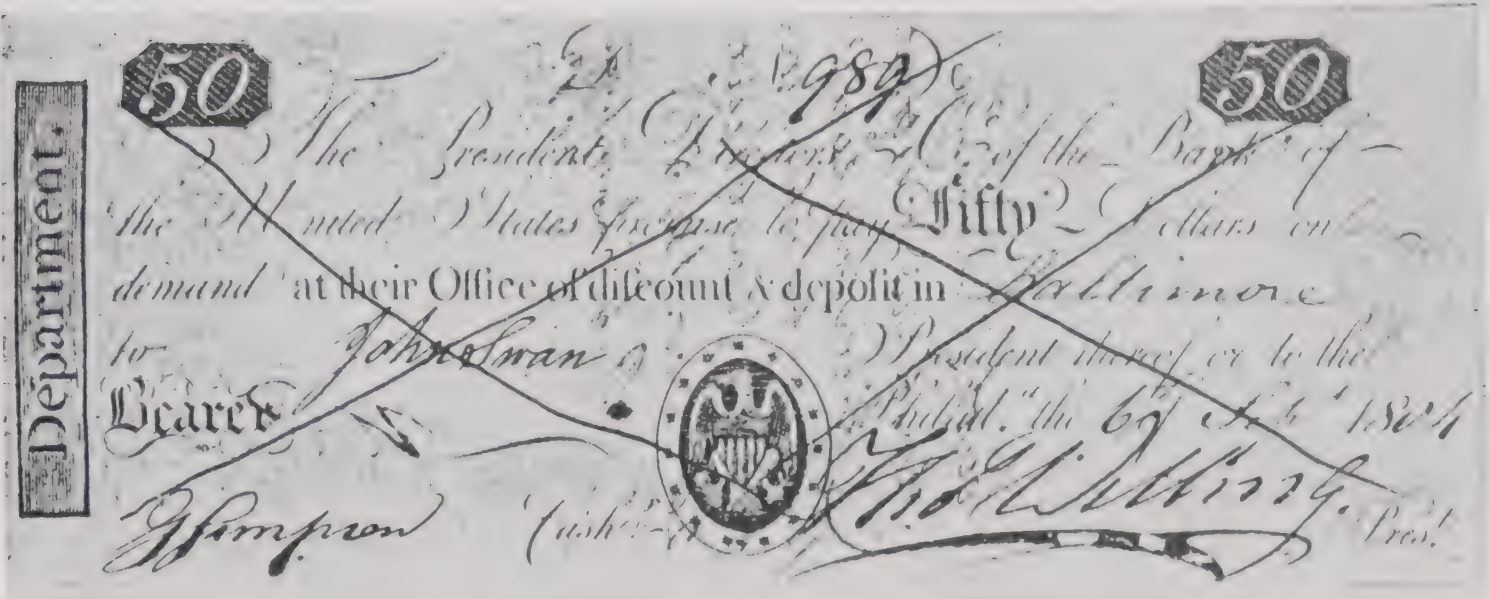 Department.
50 989 50
The President, Directors, & Co. of the Bank of
the United States promise to pay Fifty Dollars on
demand at their Office of diſcount & depoſit in Baltimore
to John Swan President thereof, or to the
Bearer Philad. the 6 of 1804
G Simpson Cash Tho Willing. Pres.